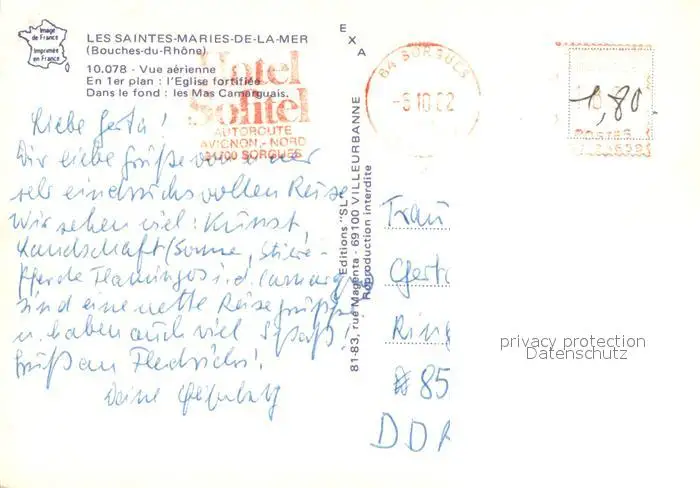 Image
de France
Imprimée
en France
LES SAINTES-MARIES-DE-LA-MER
(Bouches-du-Rhône)
10.078 - Vue aérienne
En 1er plan : l'Eglise fortifiée
Dans le fond : les Mas Camarguais.
EXA
Hotel
Solitel
AUTOROUTE
AVIGNON - NORD
84700 SORGUES
84 SORGUES
-6 10 82
1,80
POSTES
Liebe Gerta!
Dir liebe Grüße von einer
sehr eindrucksvollen Reise
Wir sehen viel: Kunst,
Landschaft (Sonne, Stiere
Pferde Flamingos i.d. Camargue
sind eine nette Reisegruppe
u. haben auch viel Spaß!
Gruß an
Deine
Editions "SL"
81-83, rue Magenta - 69100 VILLEURBANNE
Reproduction interdite
Frau
Gert
Ring
85
DDR
privacy protection
Datenschutz